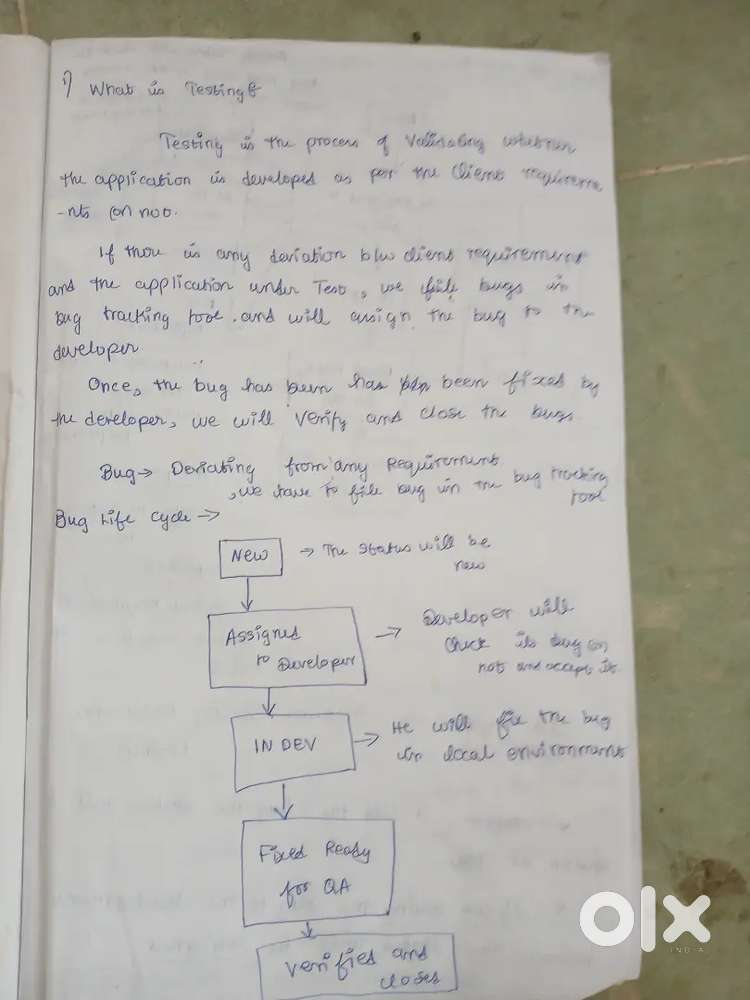 1) What is Testing?
Testing is the process of Validating whether
the application is developed as per the Client requireme
-nts (or) not.
If there is any deviation b/w client requirement
and the application under Test, we file bugs in
Bug tracking tool. and will assign the bug to the
developer.
Once, the bug has been has been fixed by
the developer, we will Verify and close the bugs.
Bug → Deviating from any Requirement
, we have to file bug in the bug tracking
tool
Bug Life Cycle →
New → The Status will be
new
Assigned
to Developer → Developer will
check its bug or
not and accept it.
IN DEV → He will fix the bug
in local environment
Fixed Ready
for QA
Verified and
closed
olx
INDIA